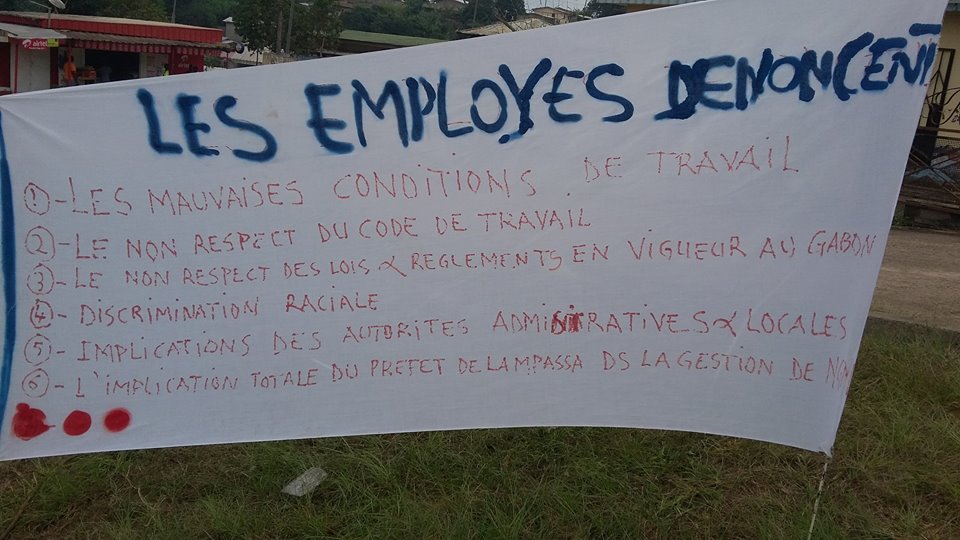 airtel
LES EMPLOYES DENONCENT
①-LES MAUVAISES CONDITIONS DE TRAVAIL
②-LE NON RESPECT DU CODE DE TRAVAIL
③-LE NON RESPECT DES LOIS & REGLEMENTS EN VIGUEUR AU GABON
④- DISCRIMINATION RACIALE
⑤- IMPLICATIONS DES AUTORITES ADMINITRATIVES & LOCALES
⑥- L'IMPLICATION TOTALE DU PREFET DE LAMPASSA DS LA GESTION DE